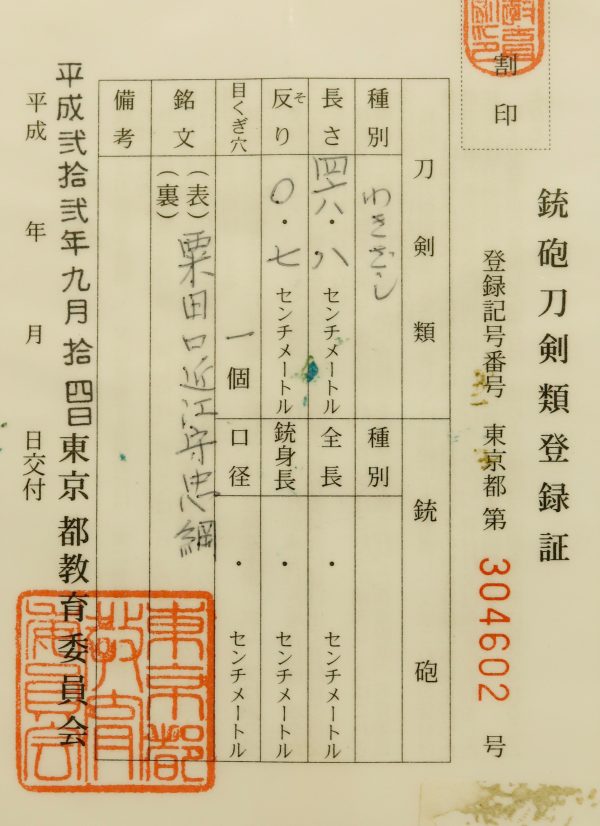 銃砲刀剣類登録証
割印
登録記号番号 東京都 第 304602 号
刀剣類 銃砲
種別 わきざし 種別
長さ 四六・八 センチメートル 全長 ・ センチメートル
反り そ 〇・七 センチメートル 銃身長 ・ センチメートル
目くぎ穴 一個 口径 ・ センチメートル
銘文 (表) 粟田口近江守忠綱
(裏)
備考
平成弐拾弐年九月拾四日 東京都教育委員会
平成 年 月 日交付
東京都教育委員会